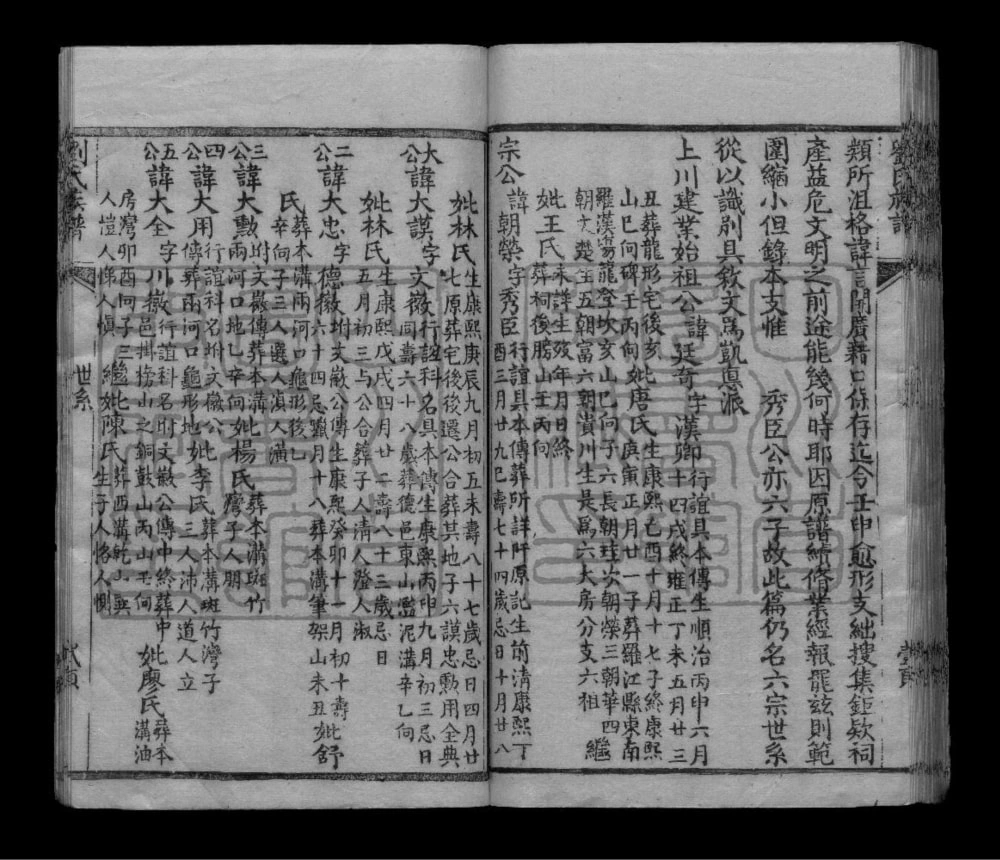 類所沮格諱言闕廣藉口保存迄今壬申愈形支絀搜集鉅欵祠
產益危文明之前途能幾何時耶因原譜續修業經報罷茲則範
圍縮小但錄本支惟 秀臣公亦六子故此篇仍名六宗世系
從以識別具敘文為凱惠派
上川建業始祖公諱廷奇字漢卿行誼具本傳生順治丙申六月
十四戌終雍正丁未五月廿三
丑葬龍形宅後亥
山巳向碑壬丙向妣唐氏生康熙乙酉十月十七子終康熙
庚寅正月廿一子葬羅江縣東南
羅漢場龍登坎亥山巳向子六長朝珄次朝榮三朝華四
朝文楚生五朝富六朝貴川生是為六大房分支六祖 繼
妣王氏未詳生歿年月日終
葬祠後膀山壬丙向
宗公諱朝榮字秀臣行誼具本傳葬所詳阡原記生前清康熙丁
酉三月廿九巳壽七十四歲忌日十月廿八
妣林氏生康熙庚辰九月初五未壽八十七歲忌日四月廿
七原葬宅後後遷公合葬其地子六謨忠勳用全典
大公諱大謨字文徽行誼科名具本傳生康熙丙申九月初三忌日
同壽六十八歲葬德邑東山濫泥溝辛乙向
妣林氏生康熙戊戌四月廿二壽八十三歲忌日
五月初三与公合葬子人清人澄人淑
二公諱大忠字德徽附文徽公傳生康熙癸卯十一月初十壽
六十四忌臘月十八葬本溝筆架山未丑妣舒
氏葬本溝兩河口龜形後乙
辛向子三人選人滇人滿
三公諱大勳附文徽傳葬本溝
兩河口地乙辛向妣楊氏葬本溝斑竹
灣子人朋
四公諱大用行誼科名附文徽公
傳葬兩河口龜形地妣李氏葬本溝斑竹灣子
三人沛人道人立
五公諱大全字川徽行誼科名附文徽公傳中終葬中
邑掛榜山之銅鼓山丙山壬向 妣廖氏葬本
溝油
房灣卯酉向子三
人愷人悌人愼 繼妣陳氏葬西溝乾山巽
生子人恪人惻
世系